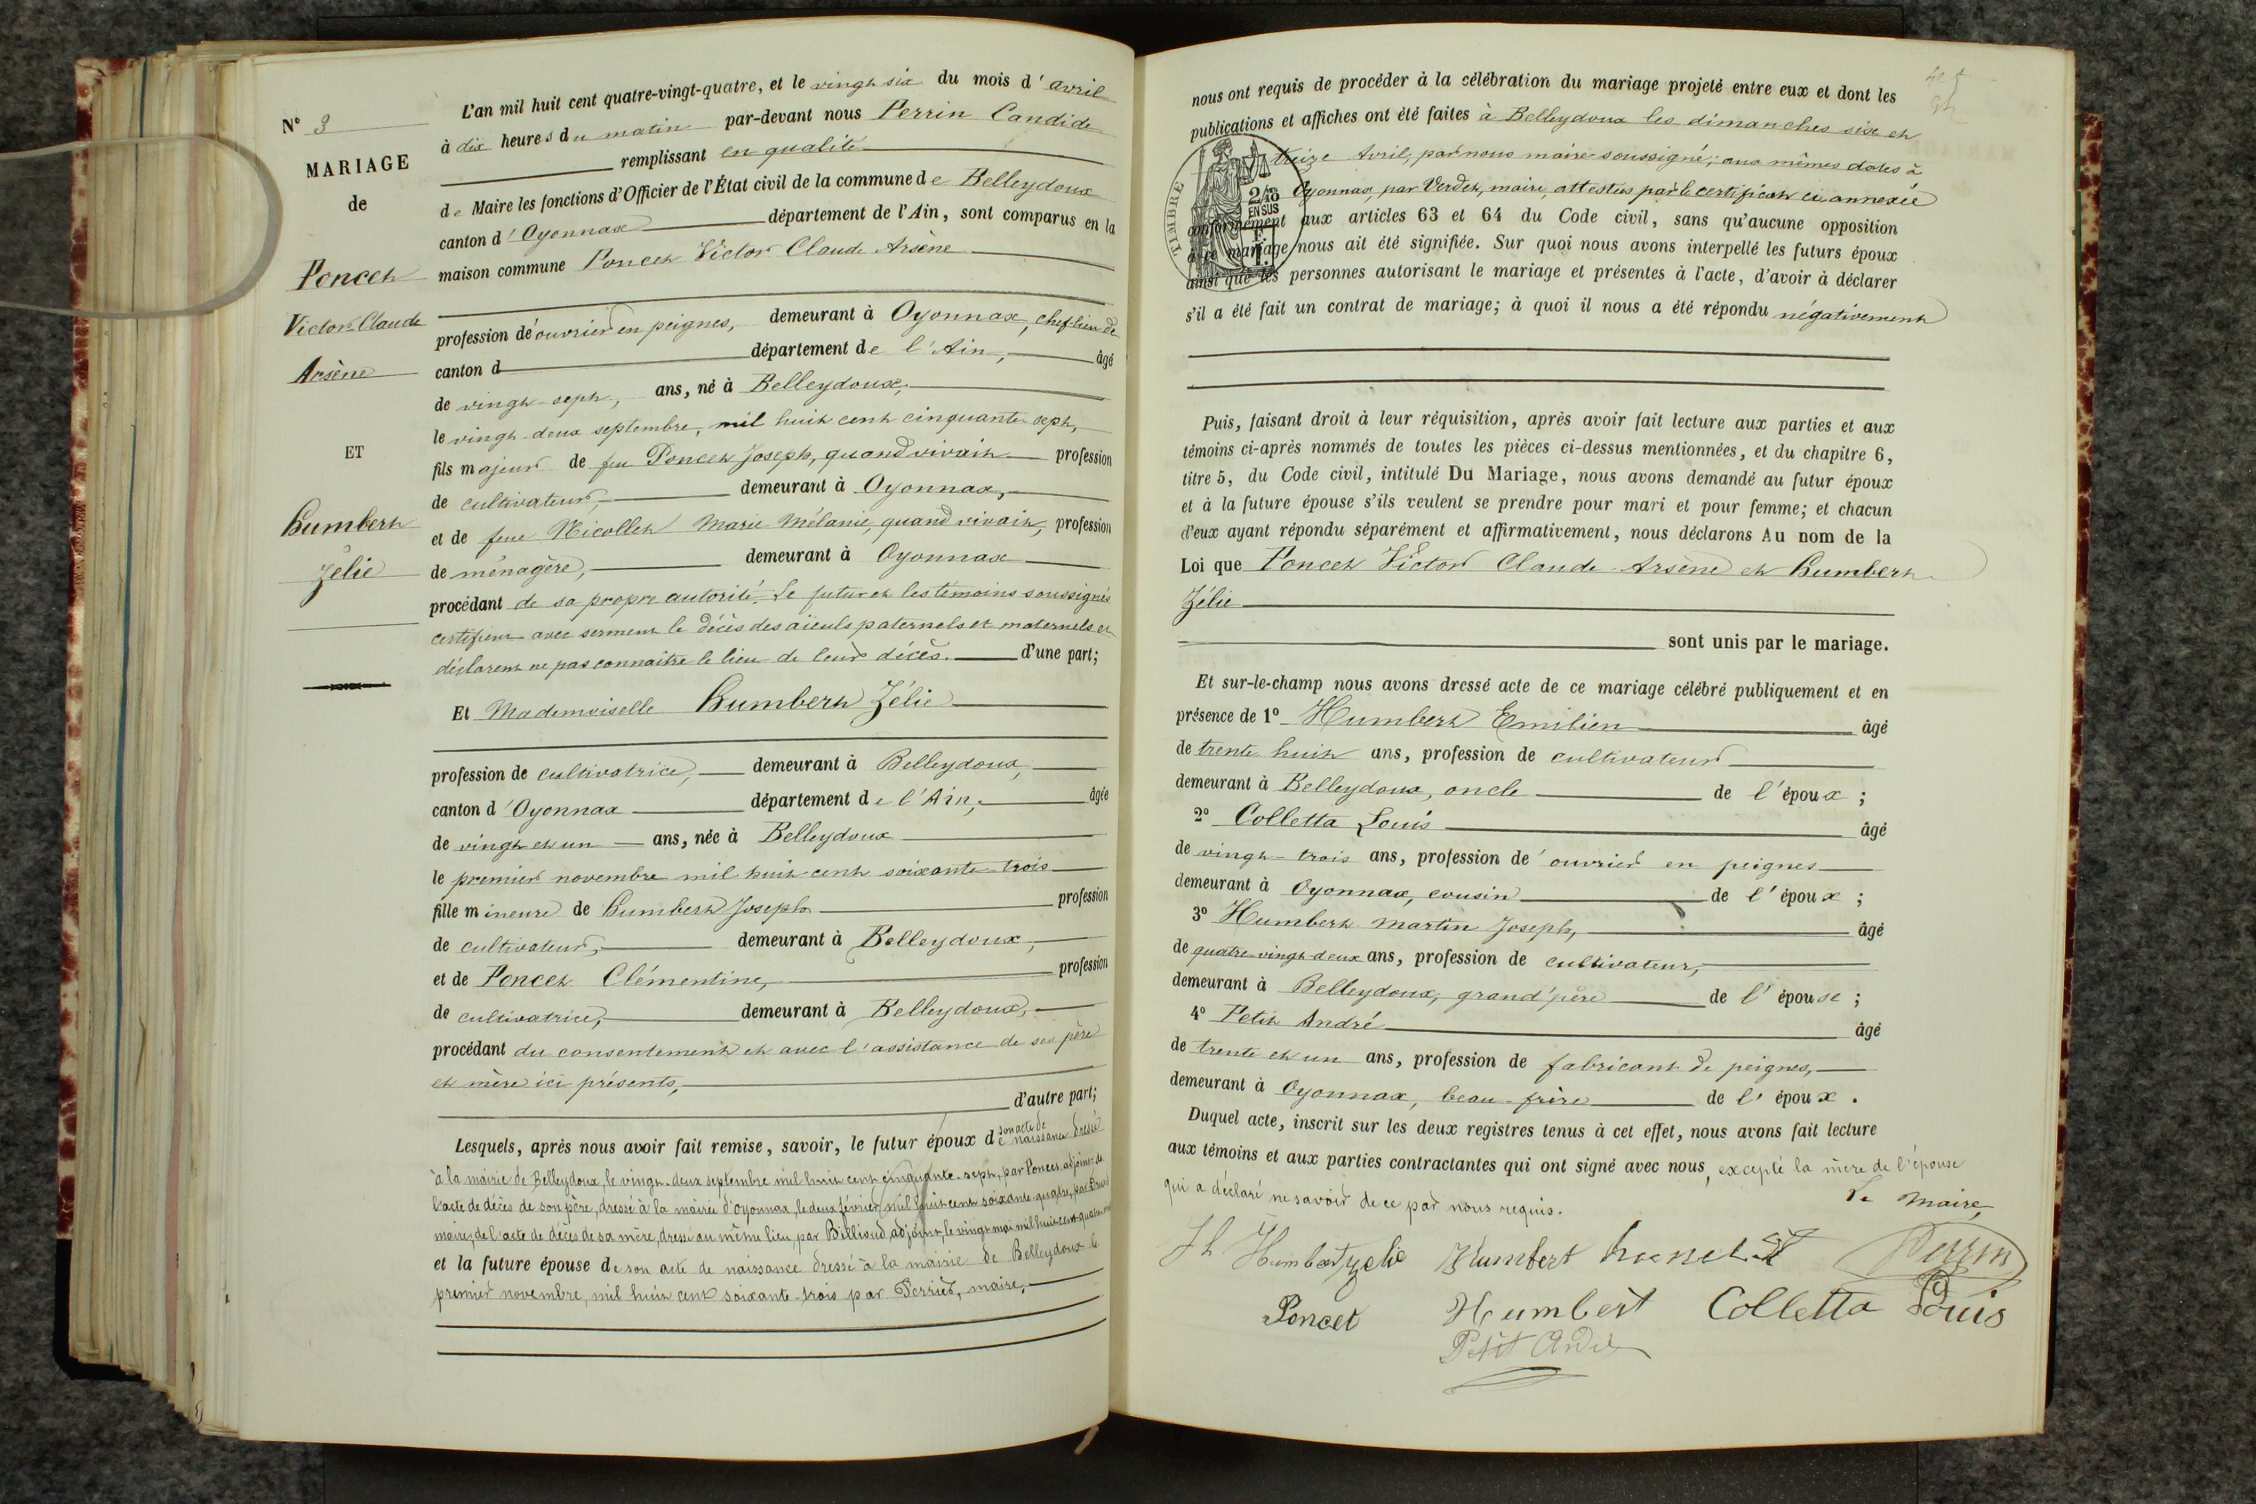 N° 3
MARIAGE
de
Poncet
Victor Claude
Arsène
ET
Humbert
Zélie
L'an mil huit cent quatre-vingt-quatre, et le vingt six du mois d'avril
à dix heures du matin par-devant nous Perrin Candide
remplissant en qualité
de Maire les fonctions d'Officier de l'État civil de la commune de Belleydoux
canton d'Oyonnax département de l'Ain, sont comparus en la
maison commune Poncet Victor Claude Arsène
profession d'ouvrier en peignes, demeurant à Oyonnax, chef-lieu de
canton d département de l'Ain, âgé
de vingt-sept, ans, né à Belleydoux,
le vingt-deux septembre, mil huit cent cinquante sept,
fils majeur de feu Poncet Joseph, quand vivait profession
de cultivateur, demeurant à Oyonnax,
et de feue Nicollet Marie Mélanie, quand vivait, profession
de ménagère, demeurant à Oyonnax
procédant de sa propre autorité. Le futur et les témoins soussignés
certifient avec serment le décès des aïeuls paternels et maternels et
déclarent ne pas connaître le lieu de leur décès. d'une part;
Et Mademoiselle Humbert Zélie
profession de cultivatrice, demeurant à Belleydoux,
canton d'Oyonnax département de l'Ain, âgée
de vingt et un ans, née à Belleydoux
le premier novembre mil huit cent soixante-trois
fille mineure de Humbert Joseph profession
de cultivateur, demeurant à Belleydoux,
et de Poncet Clémentine, profession
de cultivatrice, demeurant à Belleydoux,
procédant du consentement et avec l'assistance de ses père
et mère ici présents,
d'autre part;
Lesquels, après nous avoir fait remise, savoir, le futur époux de son acte de naissance dressé
à la mairie de Belleydoux, le vingt-deux septembre mil huit cent cinquante-sept, par Poncet, adjoint; de
l'acte de décès de son père, dressé à la mairie d'Oyonnax, le deux février mil huit cent soixante-quatre, par
maire; de l'acte de décès de sa mère, dressé au même lieu, par Billioud, adjoint, le vingt mai mil huit cent
et la future épouse de son acte de naissance dressé à la mairie de Belleydoux le
premier novembre, mil huit cent soixante-trois par Perrier, maire,
nous ont requis de procéder à la célébration du mariage projeté entre eux et dont les
publications et affiches ont été faites à Belleydoux les dimanches six et
treize Avril, par nous maire soussigné; aux mêmes dates à
Oyonnax, par Verdet, maire, attestées par le certificat ci-annexé
TIMBRE
2/10
EN SUS
conformément aux articles 63 et 64 du Code civil, sans qu'aucune opposition
à ce mariage nous ait été signifiée. Sur quoi nous avons interpellé les futurs époux
ainsi que les personnes autorisant le mariage et présentes à l'acte, d'avoir à déclarer
s'il a été fait un contrat de mariage; à quoi il nous a été répondu négativement
Puis, faisant droit à leur réquisition, après avoir fait lecture aux parties et aux
témoins ci-après nommés de toutes les pièces ci-dessus mentionnées, et du chapitre 6,
titre 5, du Code civil, intitulé Du Mariage, nous avons demandé au futur époux
et à la future épouse s'ils veulent se prendre pour mari et pour femme; et chacun
d'eux ayant répondu séparément et affirmativement, nous déclarons Au nom de la
Loi que Poncet Victor Claude Arsène et Humbert
Zélie
sont unis par le mariage.
Et sur-le-champ nous avons dressé acte de ce mariage célébré publiquement et en
présence de 1° Humbert Emilien âgé
de trente huit ans, profession de cultivateur
demeurant à Belleydoux, oncle de l'époux;
2° Colletta Louis âgé
de vingt-trois ans, profession d'ouvrier en peignes
demeurant à Oyonnax, cousin de l'époux;
3° Humbert Martin Joseph, âgé
de quatre-vingt-deux ans, profession de cultivateur,
demeurant à Belleydoux, grand'père de l'épouse;
4° Petit André âgé
de trente et un ans, profession de fabricant de peignes,
demeurant à Oyonnax, beau-frère de l'époux.
Duquel acte, inscrit sur les deux registres tenus à cet effet, nous avons fait lecture
aux témoins et aux parties contractantes qui ont signé avec nous, excepté la mère de l'épouse
qui a déclaré ne savoir de ce par nous requis.
Le Maire,
Jh Humbert Zelie Humbert Poncet Perrin
Poncet Humbert Colletta Louis
Petit André